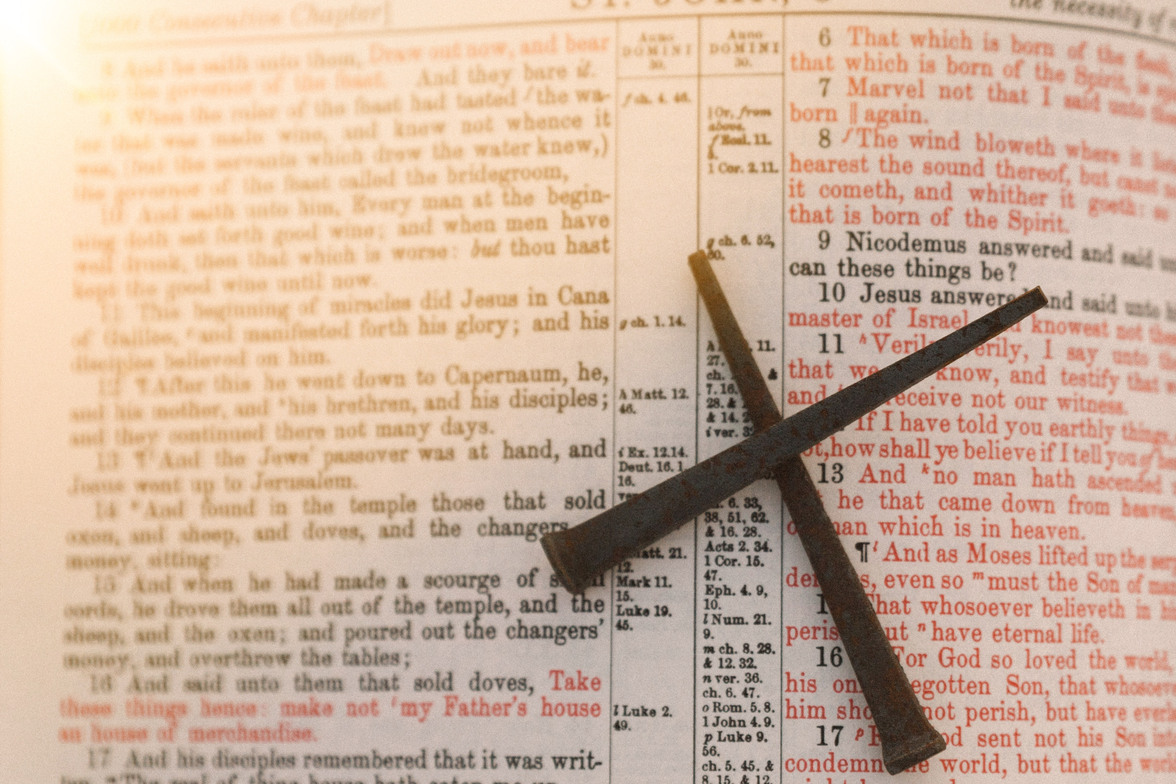 Consecutive Chapter]
ST. JOHN,
the necessity of
8 And he saith unto them, Draw out now, and bear
unto the governor of the feast. And they bare it.
9 When the ruler of the feast had tasted f the wa-
ter that was made wine, and knew not whence it
was, (but the servants which drew the water knew,)
the governor of the feast called the bridegroom,
10 And saith unto him, Every man at the begin-
ning doth set forth good wine; and when men have
well drunk, then that which is worse: but thou hast
kept the good wine until now.
11 This beginning of miracles did Jesus in Cana
of Galilee, g and manifested forth his glory; and his
disciples believed on him.
12 ¶ After this he went down to Capernaum, he,
and his mother, and h his brethren, and his disciples;
and they continued there not many days.
13 ¶ i And the Jews' passover was at hand, and
Jesus went up to Jerusalem.
14 k And found in the temple those that sold
oxen, and sheep, and doves, and the changers
money, sitting:
15 And when he had made a scourge of
cords, he drove them all out of the temple, and the
sheep, and the oxen; and poured out the changers'
money, and overthrew the tables;
16 And said unto them that sold doves, Take
these things hence: make not l my Father's house
an house of merchandise.
17 And his disciples remembered that it was writ-
Anno
DOMINI
30.
f ch. 4. 46.
g ch. 1. 14.
h Matt. 12.
46.
i Ex. 12.14.
Deut. 16. 1,
16.
Matt. 21.
12.
Mark 11.
15.
Luke 19.
45.
l Luke 2.
49.
Anno
DOMINI
30.
‖ Or, from
above.
f Eccl. 11.
1 Cor. 2. 11.
g ch. 6. 52,
60.
11.
27.
ch. &
7. 16,
28. &
& 14. 2
i ver. 3
ch. 6. 33,
38, 51, 62.
& 16. 28.
Acts 2. 34.
1 Cor. 15.
47.
Eph. 4. 9,
10.
l Num. 21.
9.
m ch. 8. 28.
& 12. 32.
n ver. 36.
ch. 6. 47.
o Rom. 5. 8.
1 John 4. 9.
p Luke 9.
56.
ch. 5. 45. &
8. 15. & 12.
6 That which is born of the flesh,
that which is born of the Spirit, is
7 Marvel not that I said unto
born ‖ again.
8 f The wind bloweth where it
hearest the sound thereof, but canst
it cometh, and whither it goeth:
that is born of the Spirit.
9 Nicodemus answered and said
can these things be?
10 Jesus answered and said unto
master of Israel, knowest not
11 h Verily, verily, I say unto
that we know, and testify that
and receive not our witness.
If I have told you earthly things
not, how shall ye believe if I tell you of
13 And k no man hath ascended
he that came down from heaven,
man which is in heaven.
¶ l And as Moses lifted up the
derness, even so m must the Son of
That whosoever believeth in
perish, but n have eternal life.
16 For God so loved the world,
his only begotten Son, that whosoever
him should not perish, but have
17 p For God sent not his Son into
condemn the world, but that the